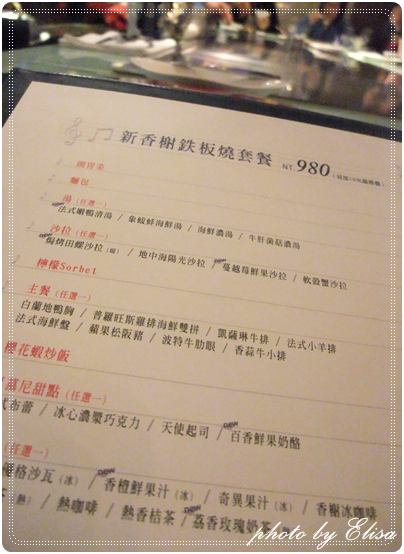 新香榭鉄板燒套餐 NT.980
開胃菜
麵包
湯(任選一)
法式嫩鴨清湯 / 象蚊蚌海鮮湯 / 海鮮濃湯 / 牛肝菌菇濃湯
沙拉(任選一)
new焗烤田螺沙拉(暖) / 地中海陽光沙拉 / new蔓越莓鮮果沙拉 / 軟殼蟹沙拉
檸檬Sorbet
主餐(任選一)
白蘭地鴨胸 / 普羅旺斯雞排海鮮雙拼 / 凱薩琳牛排 / 法式小羊排
法式海鮮盤 / 蘋果松阪豬 / 波特牛肋眼 / 香蒜牛小排
櫻花蝦炒飯
慕尼甜點(任選一)
布蕾 / 冰心濃漿巧克力 / 天使起司 / new百香鮮果奶酪
(任選一)
格沙瓦(冰) / new香橙鮮果汁(冰) / 奇異果汁(冰) / 香榭冰咖啡
熱) / 熱咖啡 / 熱香桔茶 / new荔香玫瑰奶茶
photo by Elisa